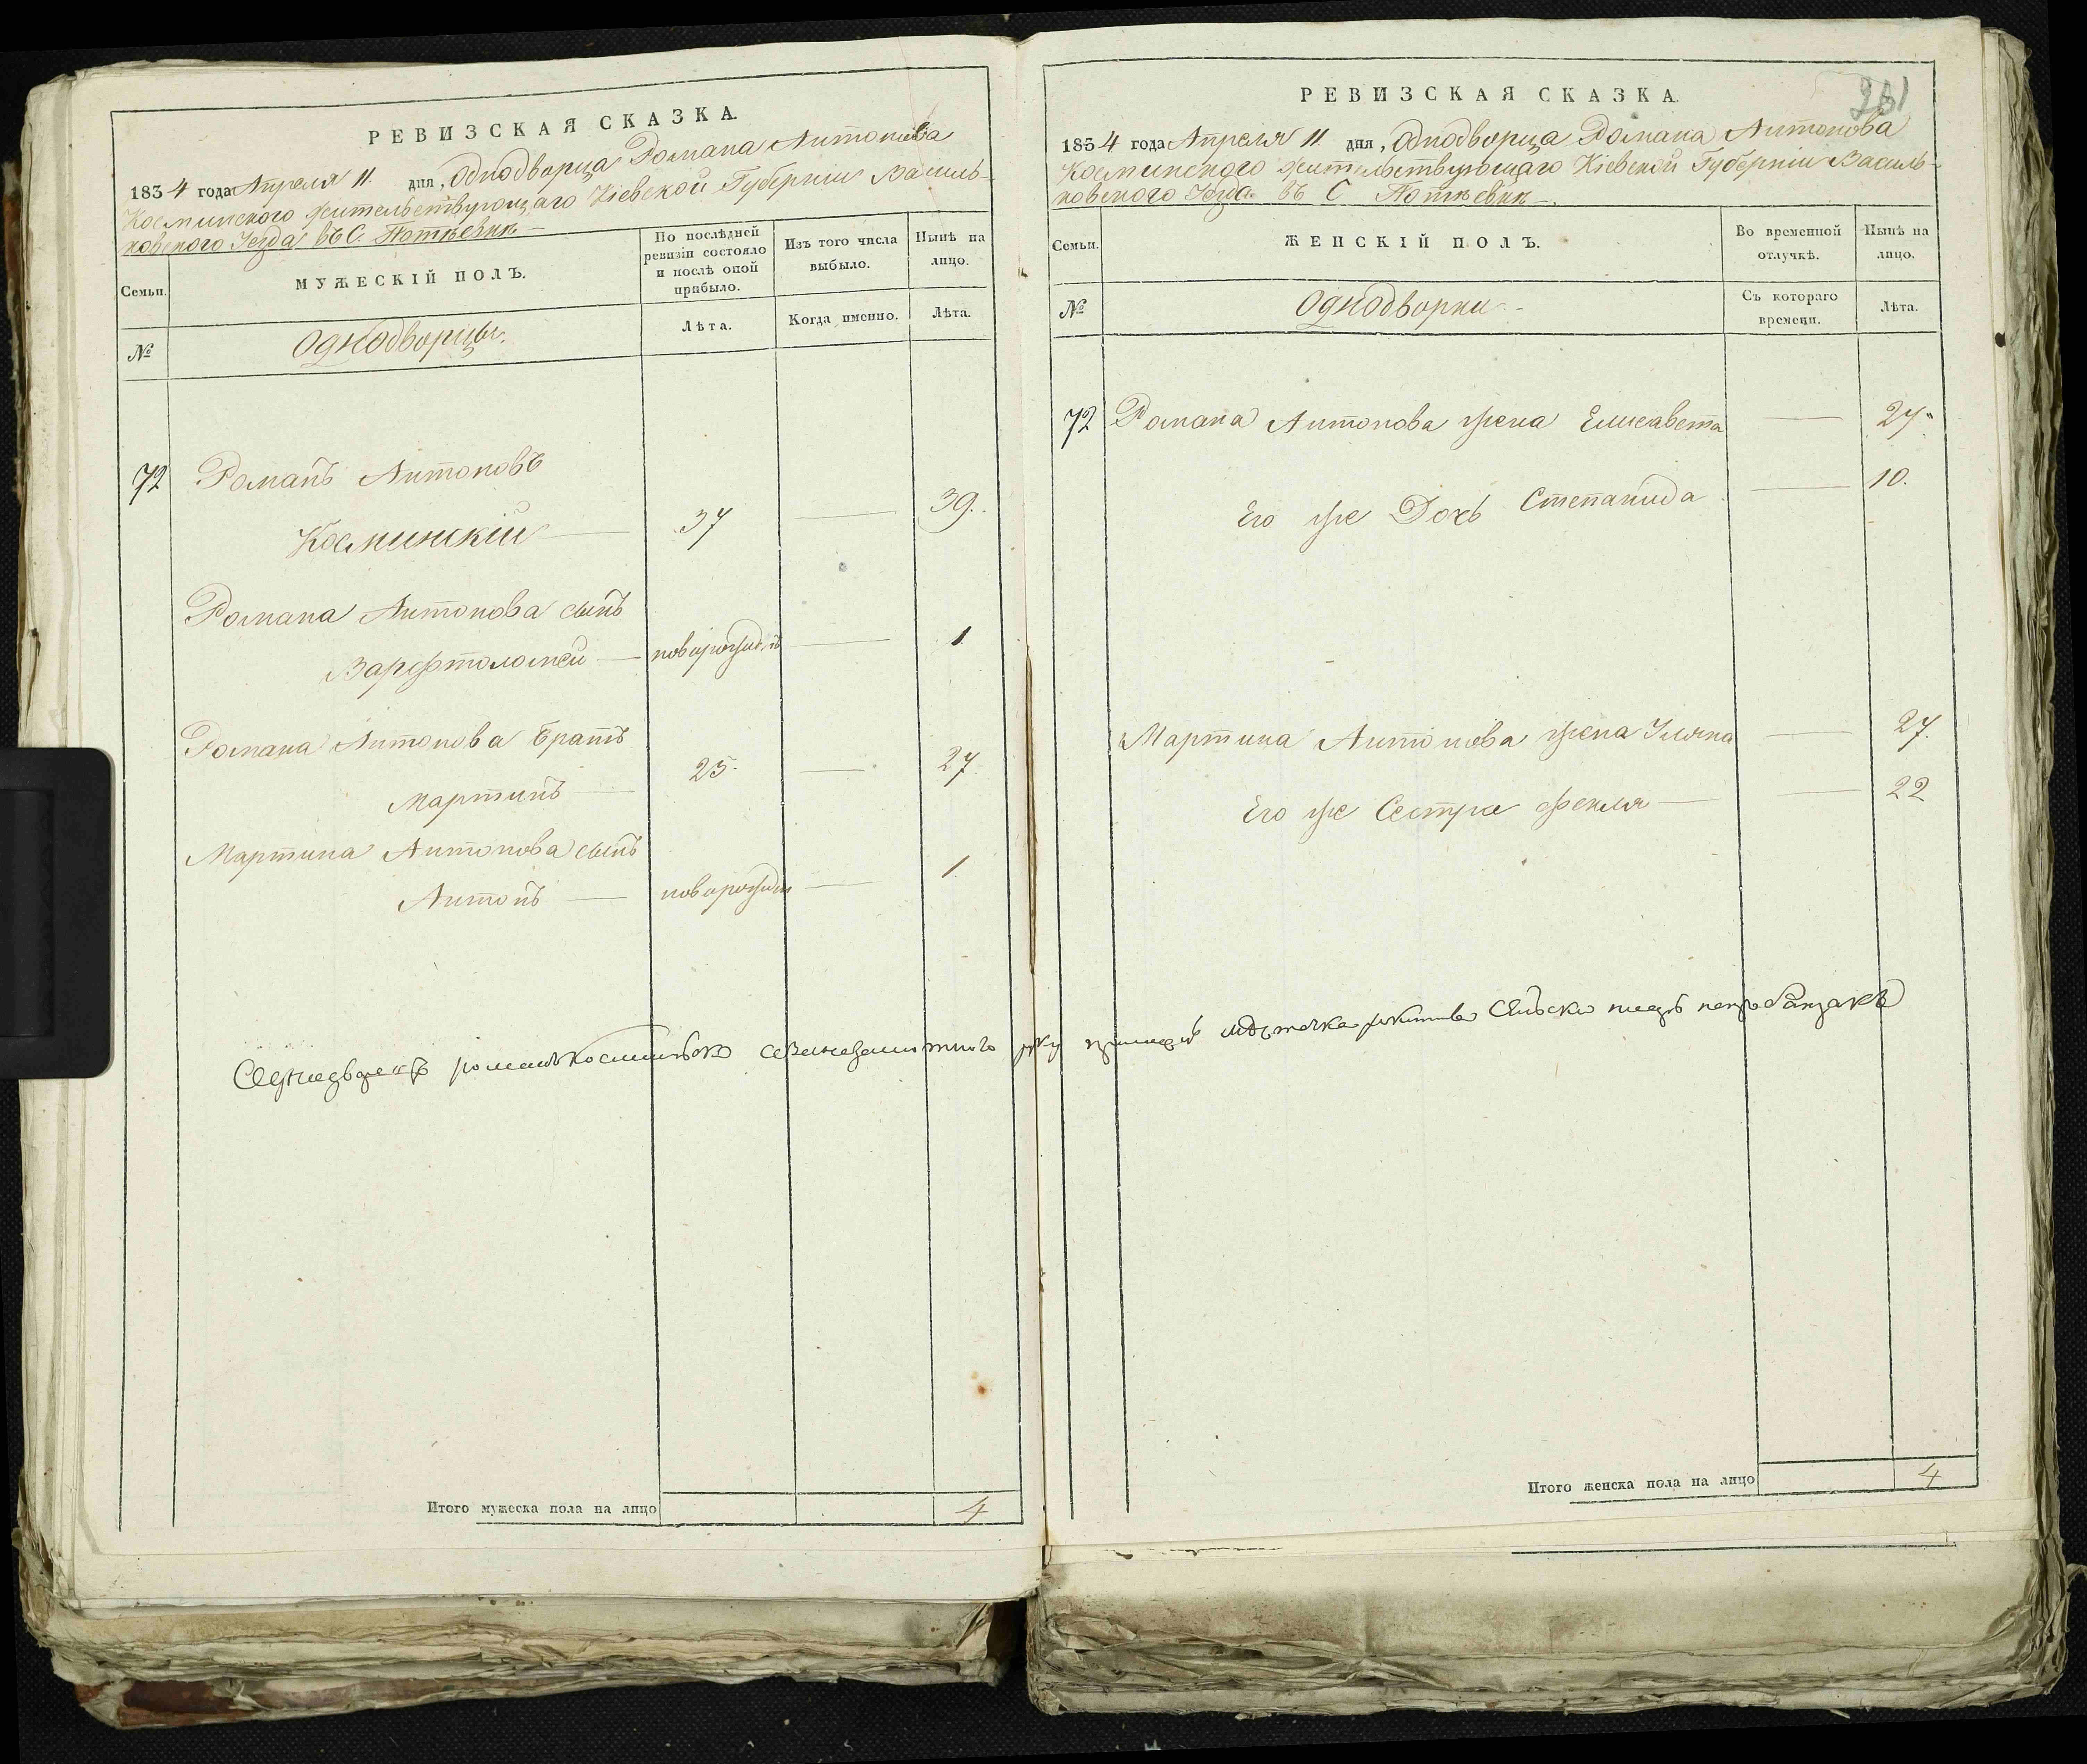 РЕВИЗСКАЯ СКАЗКА.
1834 года Апреля 11. дня, Однодворца Романа Антонова
Косминского жительствующаго Кіевской Губерніи Василь-
ковского Уезда въ С.
Семьи.
МУЖЕСКІЙ ПОЛЪ.
По послѣдней ревизіи состояло и послѣ оной прибыло.
Изъ того числа выбыло.
Нынѣ на лицо.
№
Однодворцы.
Лѣта.
Когда именно.
Лѣта.
72 Романъ Антоновъ
Косминскій — 37 — 39.
Романа Антонова сынъ
Варфтоломей — — 1
Романа Антонова братъ
Мартинъ — 25. — 27.
Мартина Антонова сынъ
Антонъ — — 1.
Итого мужеска пола на лицо 4
261
РЕВИЗСКАЯ СКАЗКА.
1834 года Апреля 11 дня, Однодворца Романа Антонова
Косминского жительствующаго Кіевской Губерніи Василь-
ковского Уезда въ С
Семьи.
ЖЕНСКІЙ ПОЛЪ.
Во временной отлучкѣ.
Нынѣ на лицо.
№
Однодворки
Съ котораго времени.
Лѣта.
72 Романа Антонова жена Елисавета — 27.
Его же Дочь Степанида — 10.
Мартина Антонова жена Уляна — 27.
Его же Сестра Фекля — — 22
Итого женска пола на лицо 4